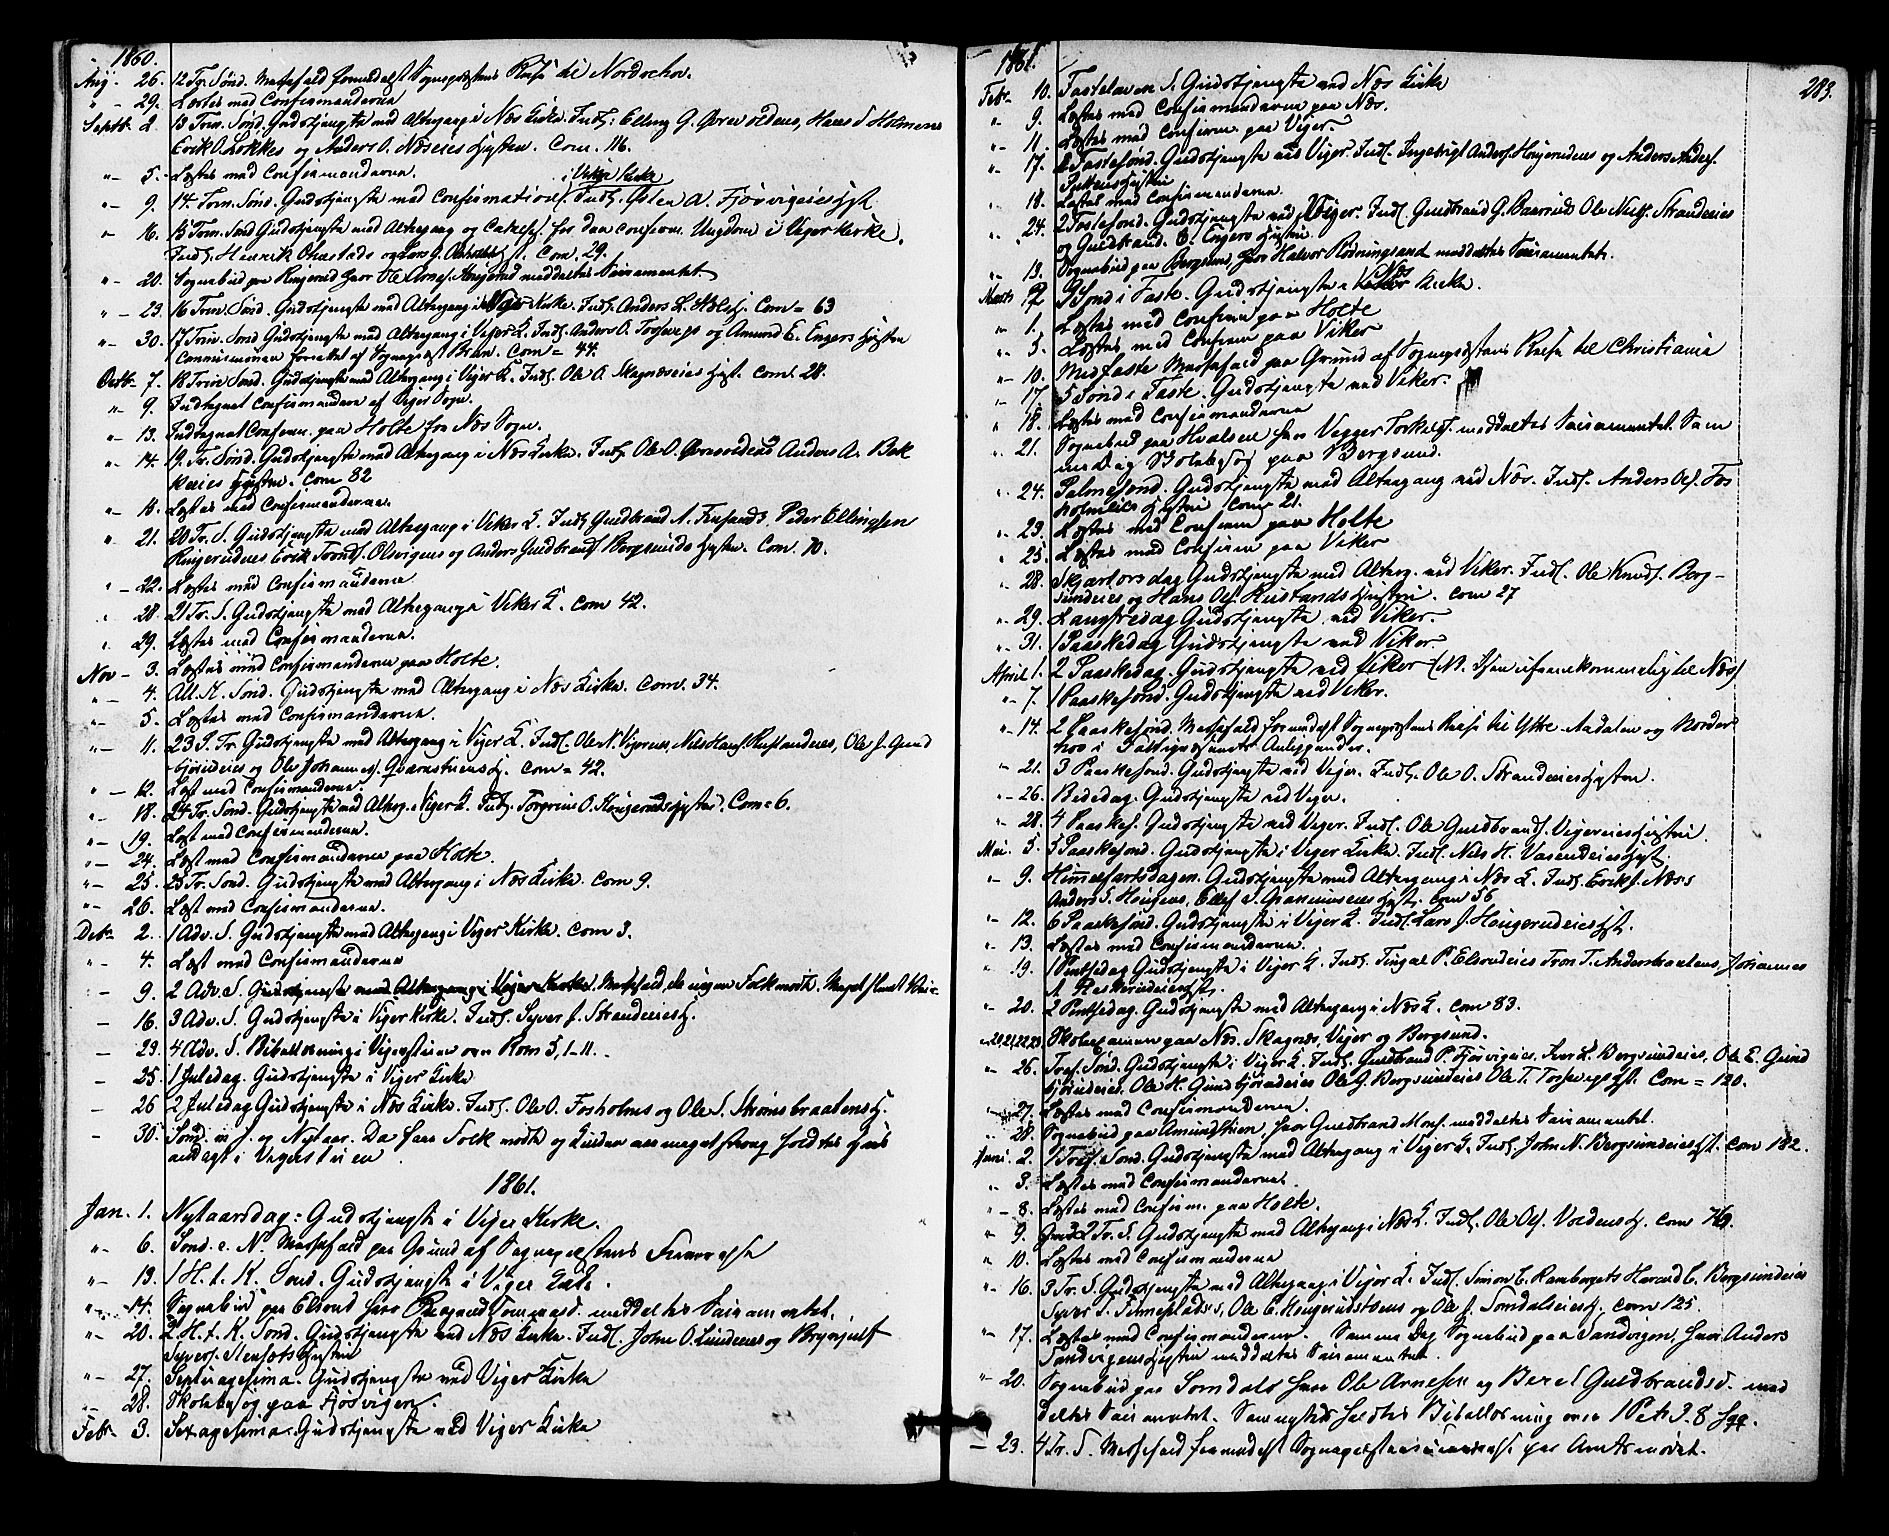 1860.
Aug. 26. 12 Tr. Sønd. Messefald formedelst Sognepræstens Reise til Norderhov.
" - 29. Læstes med Confirmanderne
Septb. 2. 13 Trin. Sønd. Gudstjeneste med Altergang i Næs Kirke. Indl. Elling G. Ørevoldens, Hans
Erik O. Løkkes og Anders O. Næseies Hustru. Com. 116.
" - 5. Læstes med Confirmanderne.
i Viker Kirke
" - 9. 14. Trin. Sønd. Gudstjeneste med Confirmation.
" - 16. 15 Trin. Sønd Gudstjeneste med Altergang og Catechs. for den confirm. Ungdom i Viger Kirke.
Indl. Henrik Com. 29.
" - 20. Sognebud paa meddeltes Sacramentet
" - 23. 16 Trin. Sønd. Gudstjeneste med Altergang i Næs Kirke. Indl. Anders L. Com = 63
" - 30. 17 Trin Sønd Gudstjeneste med Altergang i Viger K. Indl. Anders O. og Amund E. Engers Hustru
Com = 44.
Octb. 7. 18 Trin Sønd. Gudstjeneste med Altergang i Viger K. Indl. Ole O. Skagnæseies Hust. Com. 28.
" - 9. Indtegnet Confirmanderne af Viger Sogn.
" - 13. Indtegnet Confirm. paa Holte fra Næs Sogn.
" - 14. 19. Tr. Sønd. Gudstjeneste med Altergang i Næs Kirke. Indl. Ole O. Ørevoldens Anders A. Bek
keeies Hustru. Com 82
" 18. Læstes med Confirmanderne.
" 21. 20 Tr. S. Gudstjeneste med Altergang i Viker K. Indl. Guldbrand Peder Ellingsen
Ringerudeies Erik og Anders Guldbrands. Bergsunds Hustru. Com. 70.
" - 22. Læstes med Confirmanderne
" 28. 21 Tr. S. Gudstjeneste med Altergang i Viker K. Com 42.
" 29. Læstes med Confirmanderne.
Nov - 3. Læstes med Confirmanderne paa Holte.
" - 4. All. H. Sønd. Gudstjeneste med Altergang i Næs Kirke. Com. 34.
" - 5. Læstes med Confirmanderne.
" - 11. 23 S. Tr. Gudstjeneste med Altergang i Viger K. Indl. Ole N. Nils Hans. Ole J. Gund
bjørudeies og Ole Johannes. Com = 42.
" - 12. Læst med Confirmanderne.
" - 18. 24 Tr. Sønd. Gudstjeneste med Alterg. i Viger K. Indl. Torgrim O. Hougerudshustru. Com = 6.
" - 19. Læst med Confirmanderne.
" - 24. Læst med Confirmanderne paa Holte.
" - 25. 25 Tr. Sønd. Gudstjeneste med Altergang i Næs Kirke. Com 9.
" - 26. Læst med Confirmanderne.
Debr 2. 1 Adv. S. Gudstjeneste med Altergang i Viger Kirke. Com 3.
" - 4. Læst med Confirmanderne
" - 9. 2 Adv. S. Gudstjeneste med Altergang i Viger Kirke. Messefald, da ingen Folk mødte. Meget slemt Vei =
— 16. 3 Adv. S. Gudstjeneste i Viger Kirke. Indl. Syver J. Strandeies H.
— 23. 4 Adv. S. Bibellæsning i Vigerstuen over Rom 5, 1-11.
— 25. 1 Juledag. Gudstjeneste i Viger Kirke
— 26 2 Juledag Gudstjeneste i Næs Kirke. Indl. Ole O. Fosholms og Ole S. Strømsbraatens H.
— 30. Sønd. m. J. og Nytaar. Da faa Folk mødte og Kulden var meget streng holdtes Guds
andagt i Vigerstuen
1861.
Jan. 1. Nytaarsdag: Gudstjeneste i Viger Kirke.
" 6. Sønd. e. N. Messefald paa Grund af Sognepræstens Fraværelse
" - 13. 1 H. t. K. Sønd. Gudstjeneste i Viger Kirke.
" - 14. Sognebud paa Elsrud hvor meddeltes Sacramentet.
" - 20. 2. H. t. K. Sønd. Gudstjeneste ved Næs Kirke. Indl. John O. Lindeies og Brynjulf
Syvers. Hustru
" - 27. Septuagesima. Gudstjeneste ved Viger Kirke
" - 28. Skolebesøg paa Fjøsvigen.
Febr 3. Sexagesima. Gudstjeneste ved Viger Kirke
1861.
283.
Febr 10. Fastelavns S. Gudstjeneste ved Næs Kirke
" 9. Læstes med Confirmanderne paa Næs.
" - 11. Læstes med Confirm paa Viger.
" - 17. 1 Fastesønd. Gudstjeneste ved Viger. Indl. Ingebrigt Anders. Hougerudeies og Anders Anders.
" 18. Læstes med Confirmanderne
" 24. 2 Fastesønd. Gudstjeneste ved Viger. Indl. Guldbrand G. Ole Niels. Strandeies
og Guldbrand E. Engers Hustru.
" - 13. Sognebud paa Bergsund, hvor Halvor Rødningsand meddeltes Sacramentet.
Næs
Marts 3 Sønd i Faste. Gudstjeneste i Viker Kirke.
" 1. Læstes med Confirm paa Holte
" 5. Læstes med Confirm paa Viker
" - 10. Midfaste Messefald paa Grund af Sognepræstens Reise til Christiania
" 17. 5 Sønd i Faste. Gudstjeneste ved Viker.
" 18. Læstes med Confirmanderne
" 21. Sognebud paa Hvalsen hvor Vegger Torkels. meddeltes Sacramentet. Sam
me Dag Skolebesøg paa Bergsund.
" 24. Palmesønd. Gudstjeneste med Altergang ved Næs. Indl. Anders Ols. Fos
holmeies Hustru Com 21.
" 23. Læstes med Confirm paa Holte
" 25. Læstes med Confirm paa Viker
" 28. Skjærtorsdag Gudstjeneste med Alterg. ved Viker. Indl. Ole Knuds. Berg-
sundeies og Hans Ols. Rustands Hustru. Com 27
" 29. Langfredag Gudstjeneste ved Viker.
" - 31. 1 Paaskedag Gudstjeneste ved Viker
April 1. 2 Paaskedag. Gudstjeneste ved Viker (NB. Isen ufremkommelig til Næs)
" 7. 1 Paaskesønd. Gudstjeneste ved Viker.
" 14. 2 Paaskesønd. Messefald formedelst Sognepræstens Reise til Ytre Aadalen og Norder
hov i Fattigvæsenets Anliggender.
" - 21. 3 Paaskesønd. Gudstjeneste ved Viger. Indl. Ole O. Strandeies Hustru.
" - 26. Bededag. Gudstjeneste ved Viger.
" - 28. 4 Paaskes. Gudstjeneste ved Viger. Indl. Ole Guldbrands. Vigereies Hustru.
Mai 5. 5 Paaskesønd. Gudstjeneste i Viger Kirke. Indl. Nils H. Vasendeies Hust.
" - 9. Himmelfartsdagen. Gudstjeneste med Altergang i Næs K. Indl. Erik J. Næss
Anders S. Hougens, Com 56
" 12. 6 Paaskesønd. Gudstjeneste i Viger K. Indl. Lars J. Hougerudeies Hst.
" - 13. Læstes med Confirmanderne.
" 19. 1 Pintsedag Gudstjeneste i Viger K. Indl. P. Elsrudeies Tron T. Andersbraatens, Johannes
" 20. 2 Pintsedag. Gudstjeneste med Altergang i Næs K. Com 83.
" 20,21,22,23. Skolexamen paa Næs. Skagnæs, Viger og Bergsund.
" 26. Tref. Sønd. Gudstjeneste i Viger K. Indl. Guldbrand P. Fjøsvigeies, Iver L. Bergsundeies, Ole E. Gund
bjørudeies, Ole H. Gundbjørudeies Ole G. Bergsundeies Ole T. Com = 120.
" 27. Læstes med Confirmanderne.
" 28. Sognebud paa hvor Guldbrand Mons. meddeltes Sacramentet.
Juni 2. 1 Tref. Sønd. Gudstjeneste med Altergang i Viger K. Indl. John N. Bergsundeies Hst. Com 182.
" 3. Læstes med Confirmanderne.
" - 8. Læstes med Confirm. paa Holte.
" 9. 2 Tr. S. Gudstjeneste med Altergang i Næs K. Indl. Ole Ols. Voldens H. Com
" 10. Læstes med Confirmanderne
" 16. 3 Tr. S. Gudstjeneste med Altergang i Viger K. Indl. Simon C. Rambergets Bergsundeies
Syver T. Ole C. og Ole J. Somdalseies H. Com 125.
" 17. Læstes med Confirmanderne. Samme Dag Sognebud paa Sandvigen, hvor Anders
Sandvigens Hustru meddeltes Sacramentet.
" 20. Sognebud paa Somdals hvor Ole Arnesen og Berel Guldbrandsd. med
deltes Sacramentet. Sammesteds holdtes Bibellæsning over 1 Petr 3. 8 fgg.
— 23. 4 Tr. S. Messefald formedelst Sognepræstens Nærværelse paa Amtsmødet.